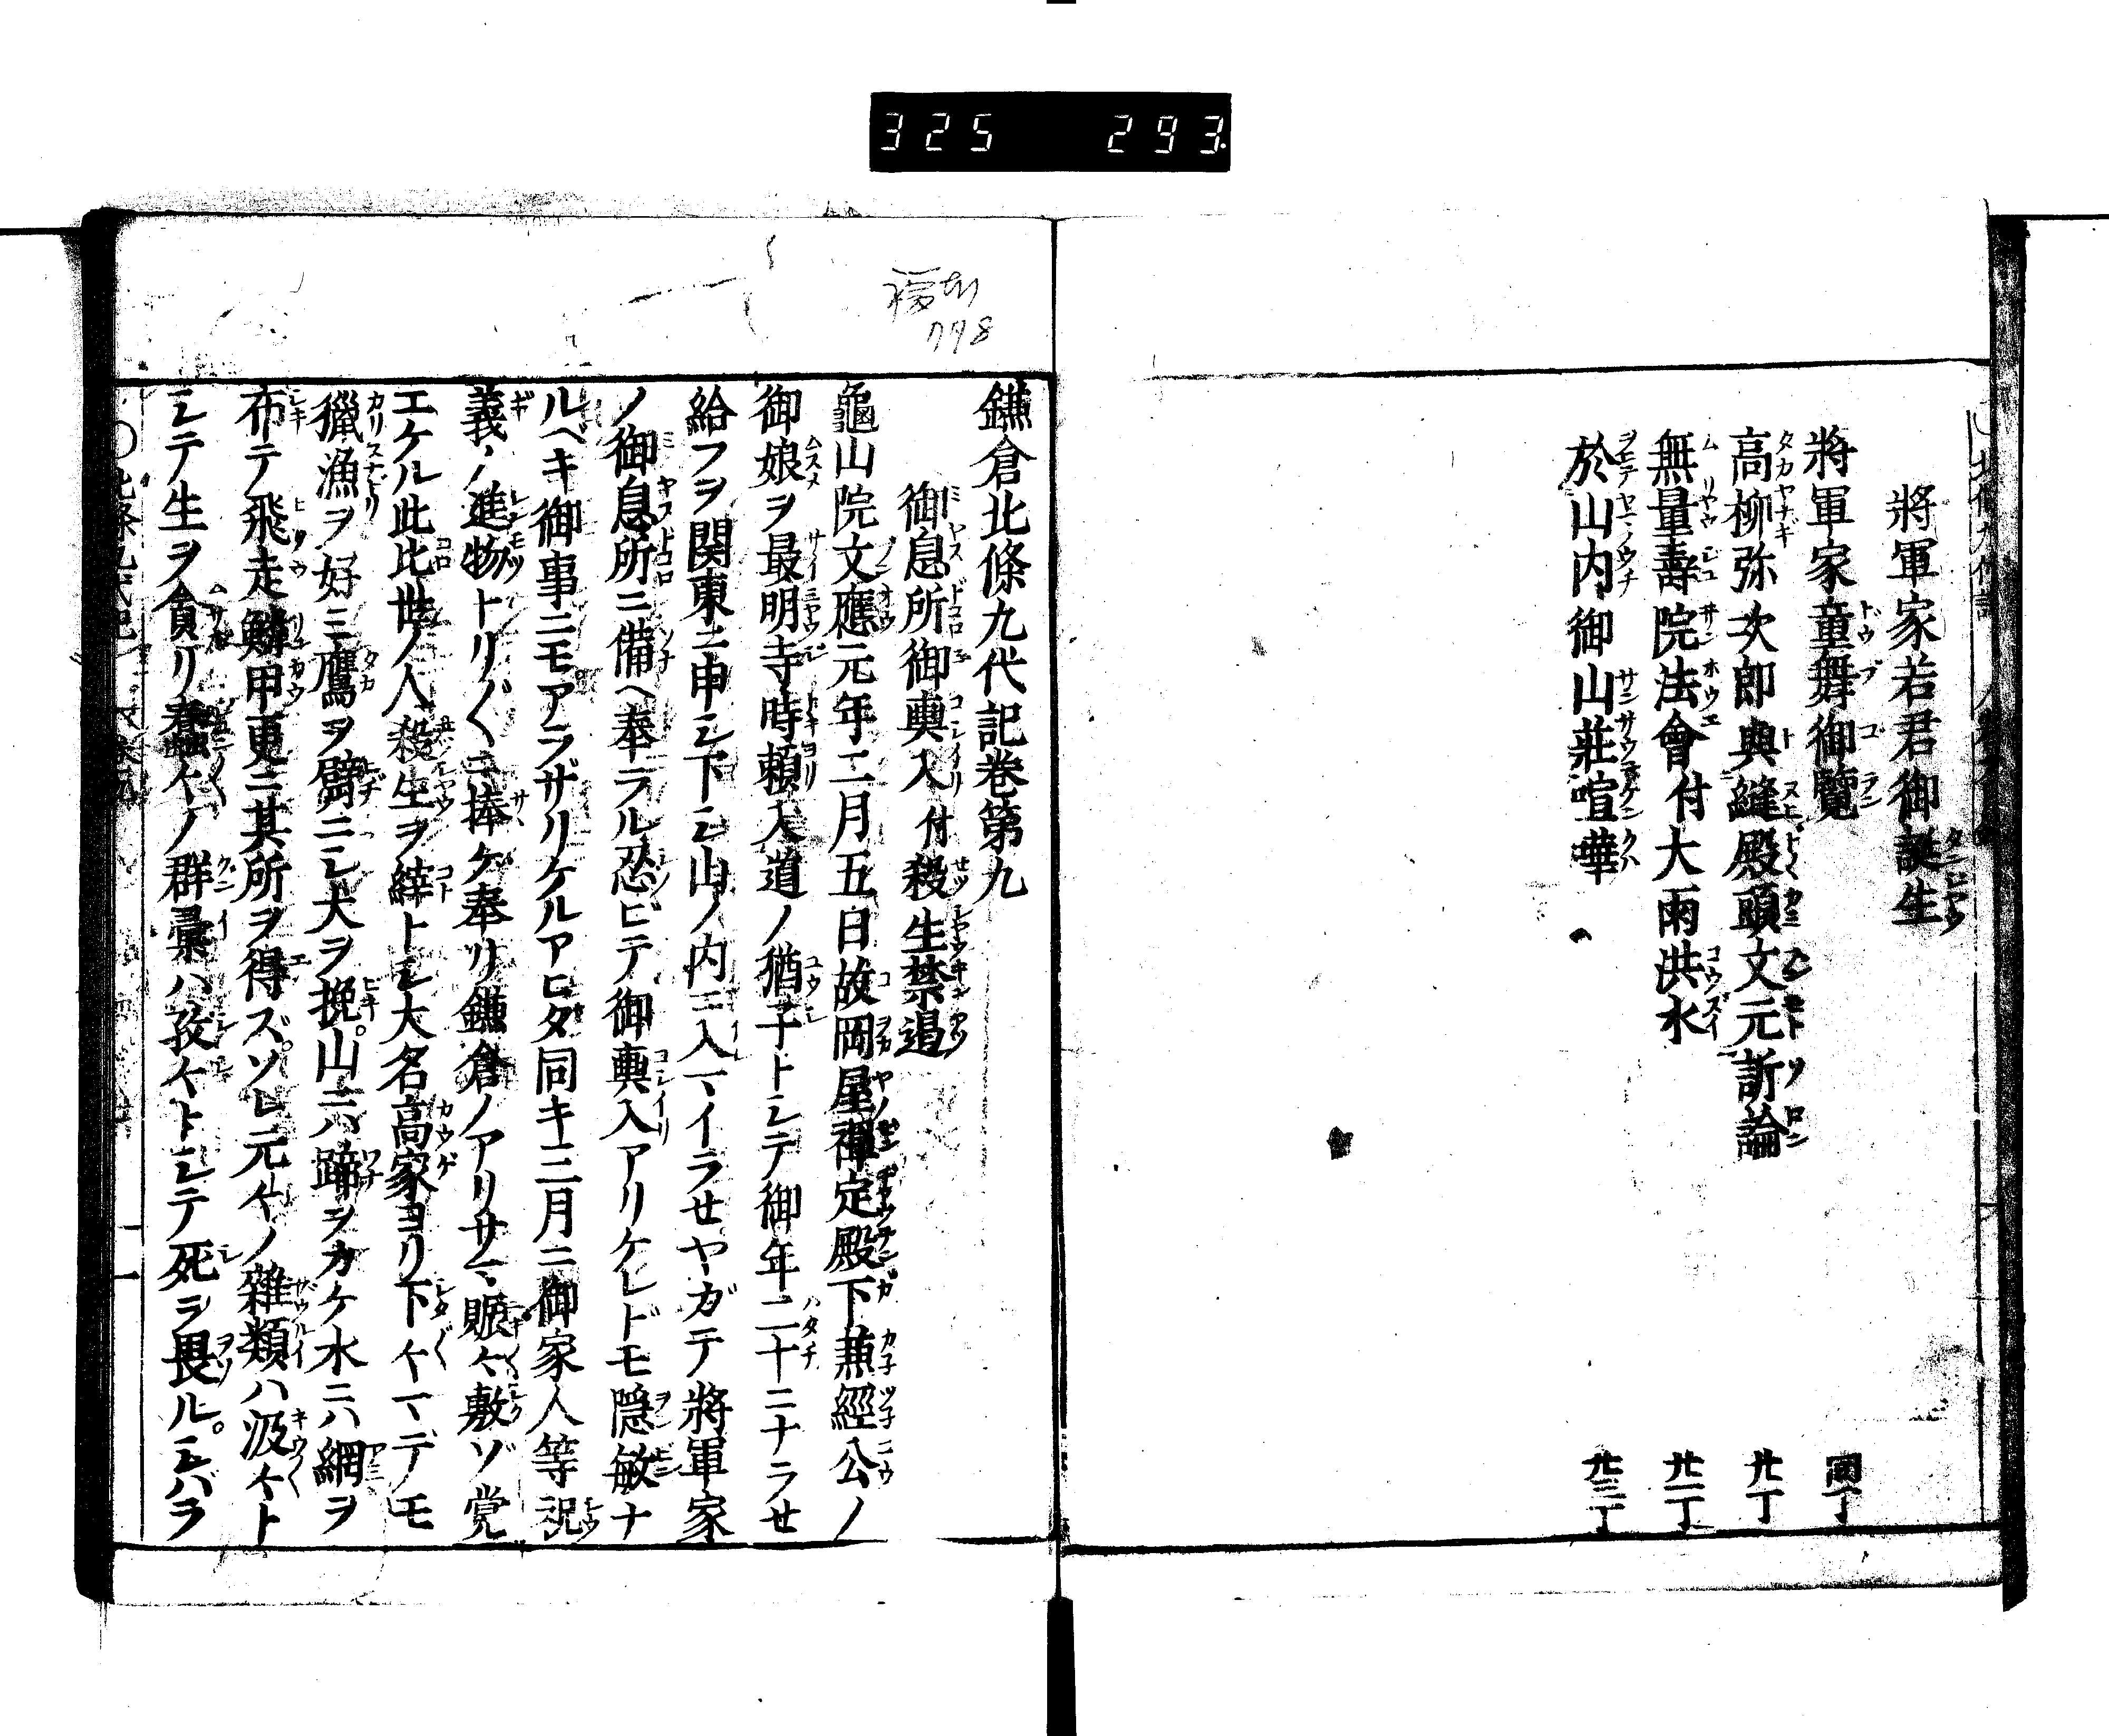 325 293
將軍家若君御誕生
將軍家童舞御覽 同丁
高柳弥次郎與縫殿頭文元訴論 廿丁
無量壽院法會付大雨洪水 廿一丁
於山内御山莊喧嘩 廿三丁
778
鎌倉北條九代記卷第九
御息所御輿入付殺生禁遏
龜山院文應元年二月五日故岡屋禪定殿下兼經公ノ
御娘ヲ最明寺時頼入道ノ猶子トシテ御年二十ニナラセ
給フヲ関東ニ申シ下シ山ノ内ニ入マイラセヤガテ將軍家
ノ御息所ニ備ヘ奉ラル忍ビテ御輿入アリケレドモ隠敏ナ
ルヘキ御事ニモアラザリケルアヒダ同キ三月ニ御家人等祝
義ノ進物トリ〱ニ捧ゲ奉リ鎌倉ノアリサマ賑々敷ゾ覚
エケル此比世ノ人殺生ヲ縡トシ大名高家ヨリ下々マデモ
獵漁ヲ好ミ鷹ヲ臂ニシ犬ヲ挽山ニハ蹄ヲカケ水ニハ網ヲ
布テ飛走鱗甲更ニ其所ヲ得ズソレ元々ノ雜類ハ汲々ト
シテ生ヲ貪リ蠢々ノ群彙ハ孜々トシテ死ヲ畏ルシバラ